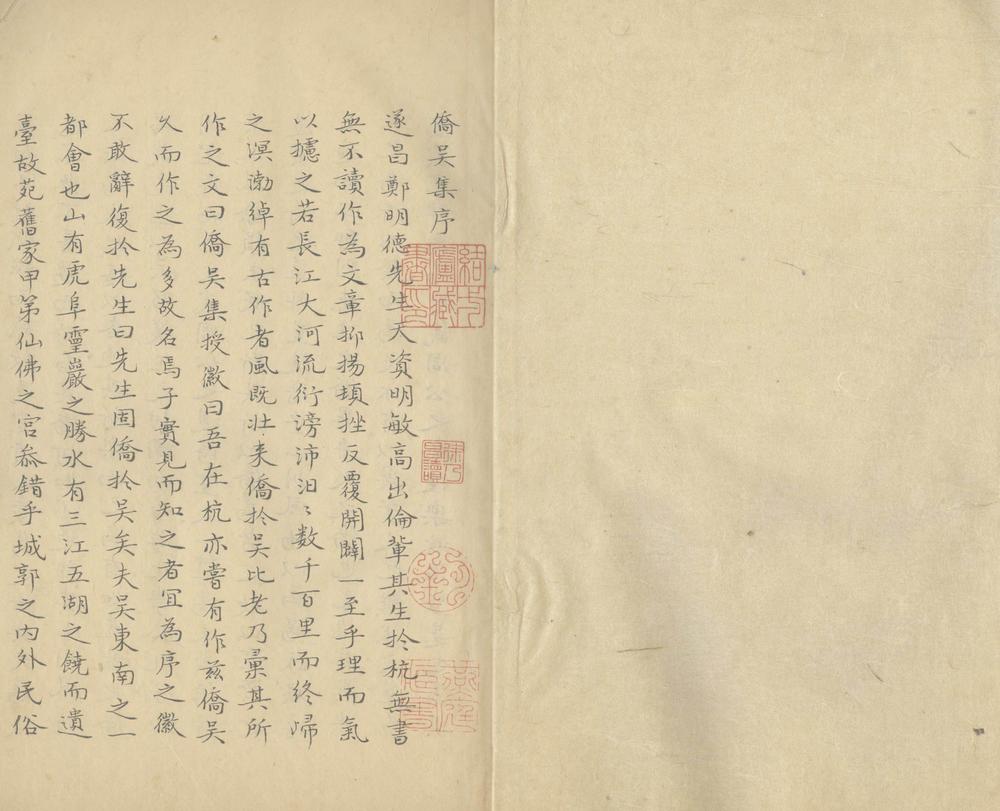 僑吳集序
遂昌鄭明德先生天資明敏高出倫輩其生扵杭無書
無不讀作為文章抑揚頓挫反覆開闔一至乎理而氣
以攄之若長江大河流衍滂沛汩〻数千百里而終歸
之溟渤綽有古作者風既壯来僑扵吳比老乃彙其所
作之文曰僑吳集授徽曰吾在杭亦嘗有作兹僑吳
乆而作之為多故名焉子實見而知之者冝為序之徽
不敢辭復扵先生曰先生固僑扵吳矣夫吳東南之一
都會也山有虎阜靈巖之勝水有三江五湖之饒而遺
臺故苑舊家甲第仙佛之宫叅錯乎城郭之内外民俗
結一廬藏書印